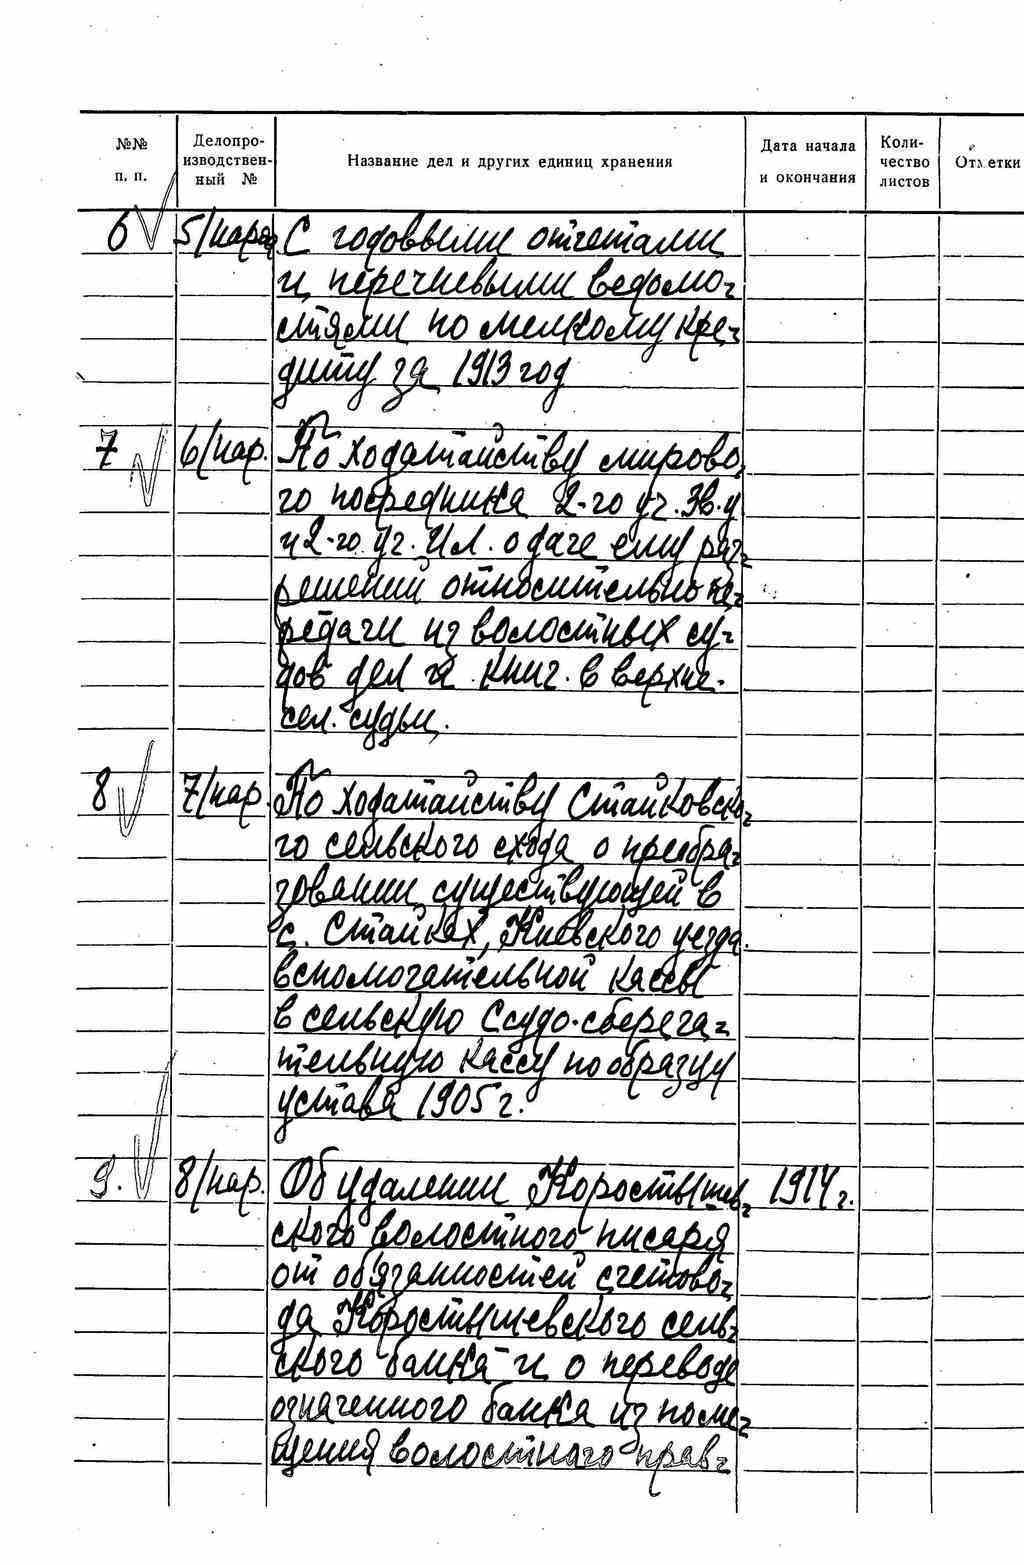 №№ п. п.
Делопро-
изводствен-
ный №
Название дел и других единиц хранения
Дата начала
и окончания
Коли-
чество
листов
6 5/наряд С годовыми отчетами
и перечневыми ведомо-
стями по мелкому кре-
диту за 1913 год
7 6/нар. По ходатайству мирово-
го посредника 2-го уч. Зв. у
и 2-го уч. о даче ему раз-
решений относительно пе-
редачи из волостных су-
дов дел и книг. в верхне-
сел. суды.
8 7/нар. По ходатайству Стайковско-
го сельского схода о преобра-
зовании существующей в
с. Стайках, Киевского уезда
вспомогательной кассы
в сельскую Ссудо-сберега-
тельную кассу по образцу
устава 1905 г.
9. 8/нар. Об удалении Коростышев- 1914 г.
ского волостного писаря
от обязанностей счетово-
да Коростышевского сель-
ского банка и о переводе
означенного банка из поме-
щения волостного прав-